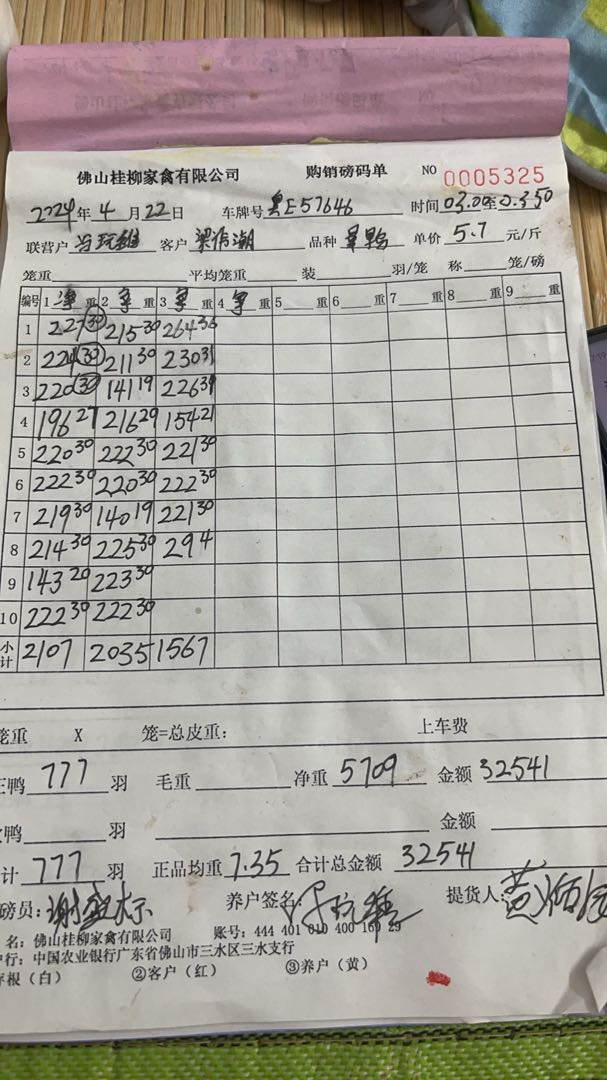 佛山桂柳家禽有限公司 购销磅码单 NO 0005325
2024年4月22日 车牌号 粤E57646 时间 03.00至0.350
联营户 冯玩维 客户 品种 单价 5.7 元/斤
笼重 平均笼重 装 羽/笼 称 笼/磅
编号 1 净重 2 净重 3 净重 4 净重 5 重 6 重 7 重 8 重 9 重
1 227 30 215 30 264 36
2 224 30 211 30 230 31
3 220 30 141 19 226 31
4 196 27 216 29 154 21
5 220 30 222 30 221 30
6 222 30 220 30 222 30
7 219 30 140 19 221 30
8 214 30 225 30 29 4
9 143 20 223 30
10 222 30 222 30
小计 2107 2035 1567
笼重 X 笼=总皮重: 上车费
正鸭 777 羽 毛重 净重 5709 金额 32541
鸭 羽 金额
计 777 羽 正品均重 7.35 合计总金额 32541
磅员: 谢 标 养户签名: 冯玩维 提货人: 黄
名: 佛山桂柳家禽有限公司 账号: 444 401 010 400 169 29
户行: 中国农业银行广东省佛山市三水区三水支行
存根（白） ②客户（红） ③养户（黄）